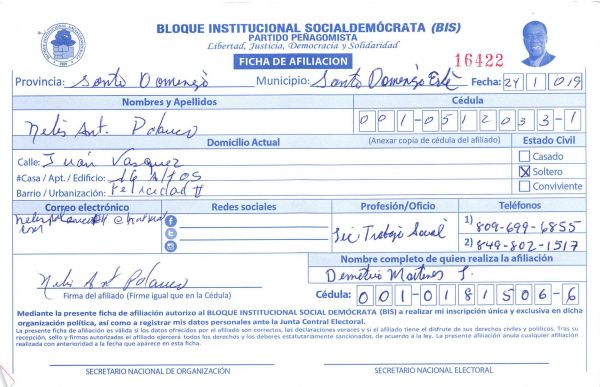 BLOQUE INSTITUCIONAL SOCIALDEMÓCRATA (BIS)
PARTIDO PEÑAGOMISTA
Libertad, Justicia, Democracia y Solidaridad
FICHA DE AFILIACION
16422
Provincia: Santo Domingo Municipio: Santo Domingo Este Fecha: 24 1 019
Nombres y Apellidos Cédula
Nelis Ant. Polanco 001-0512033-1
Domicilio Actual (Anexar copia de cédula del afiliado) Estado Civil
Calle: Juan Vasquez Casado
#Casa / Apt. / Edificio: 16 Altos X Soltero
Barrio / Urbanización: Felicidad II Conviviente
Correo electrónico Redes sociales Profesión/Oficio Teléfonos
Lic Trabajo Social
1) 809-699-6855
2) 849-802-1517
Nombre completo de quien realiza la afiliación
Nelis Ant Polanco Demetrio Martinez
Firma del afiliado (Firme igual que en la Cédula) Cédula: 001-0181506-6
Mediante la presente ficha de afiliación autorizo al BLOQUE INSTITUCIONAL SOCIAL DEMÓCRATA (BIS) a realizar mi inscripción única y exclusiva en dicha
organización política, así como a registrar mis datos personales ante la Junta Central Electoral.
La presente ficha de afiliación es válida si los datos ofrecidos por el afiliado son correctos, las declaraciones veraces y si el afiliado tiene el disfrute de sus derechos civiles y políticos. Tras su
recepción, sello y firmas autorizadas el afiliado ejercerá todos los derechos y los deberes estatutariamente sancionados, de acuerdo a la ley. La presente afiliación anula cualquier afiliación
realizada con anterioridad a la fecha que aparece en esta ficha.
SECRETARIO NACIONAL DE ORGANIZACIÓN SECRETARIO NACIONAL ELECTORAL